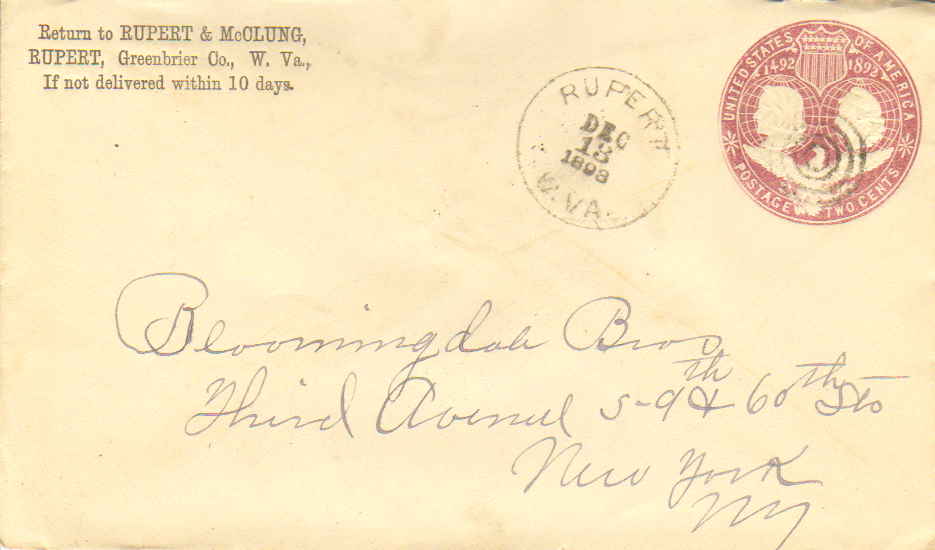 Return to RUPERT & McCLUNG,
RUPERT, Greenbrier Co., W. Va.,
If not delivered within 10 days.
RUPERT
DEC
13
1893
W.VA.
UNITED STATES OF AMERICA
1492 1892
POSTAGE TWO CENTS.
Bloomingdale Bros
Third Avenue 59th & 60th Sts
New York
NY